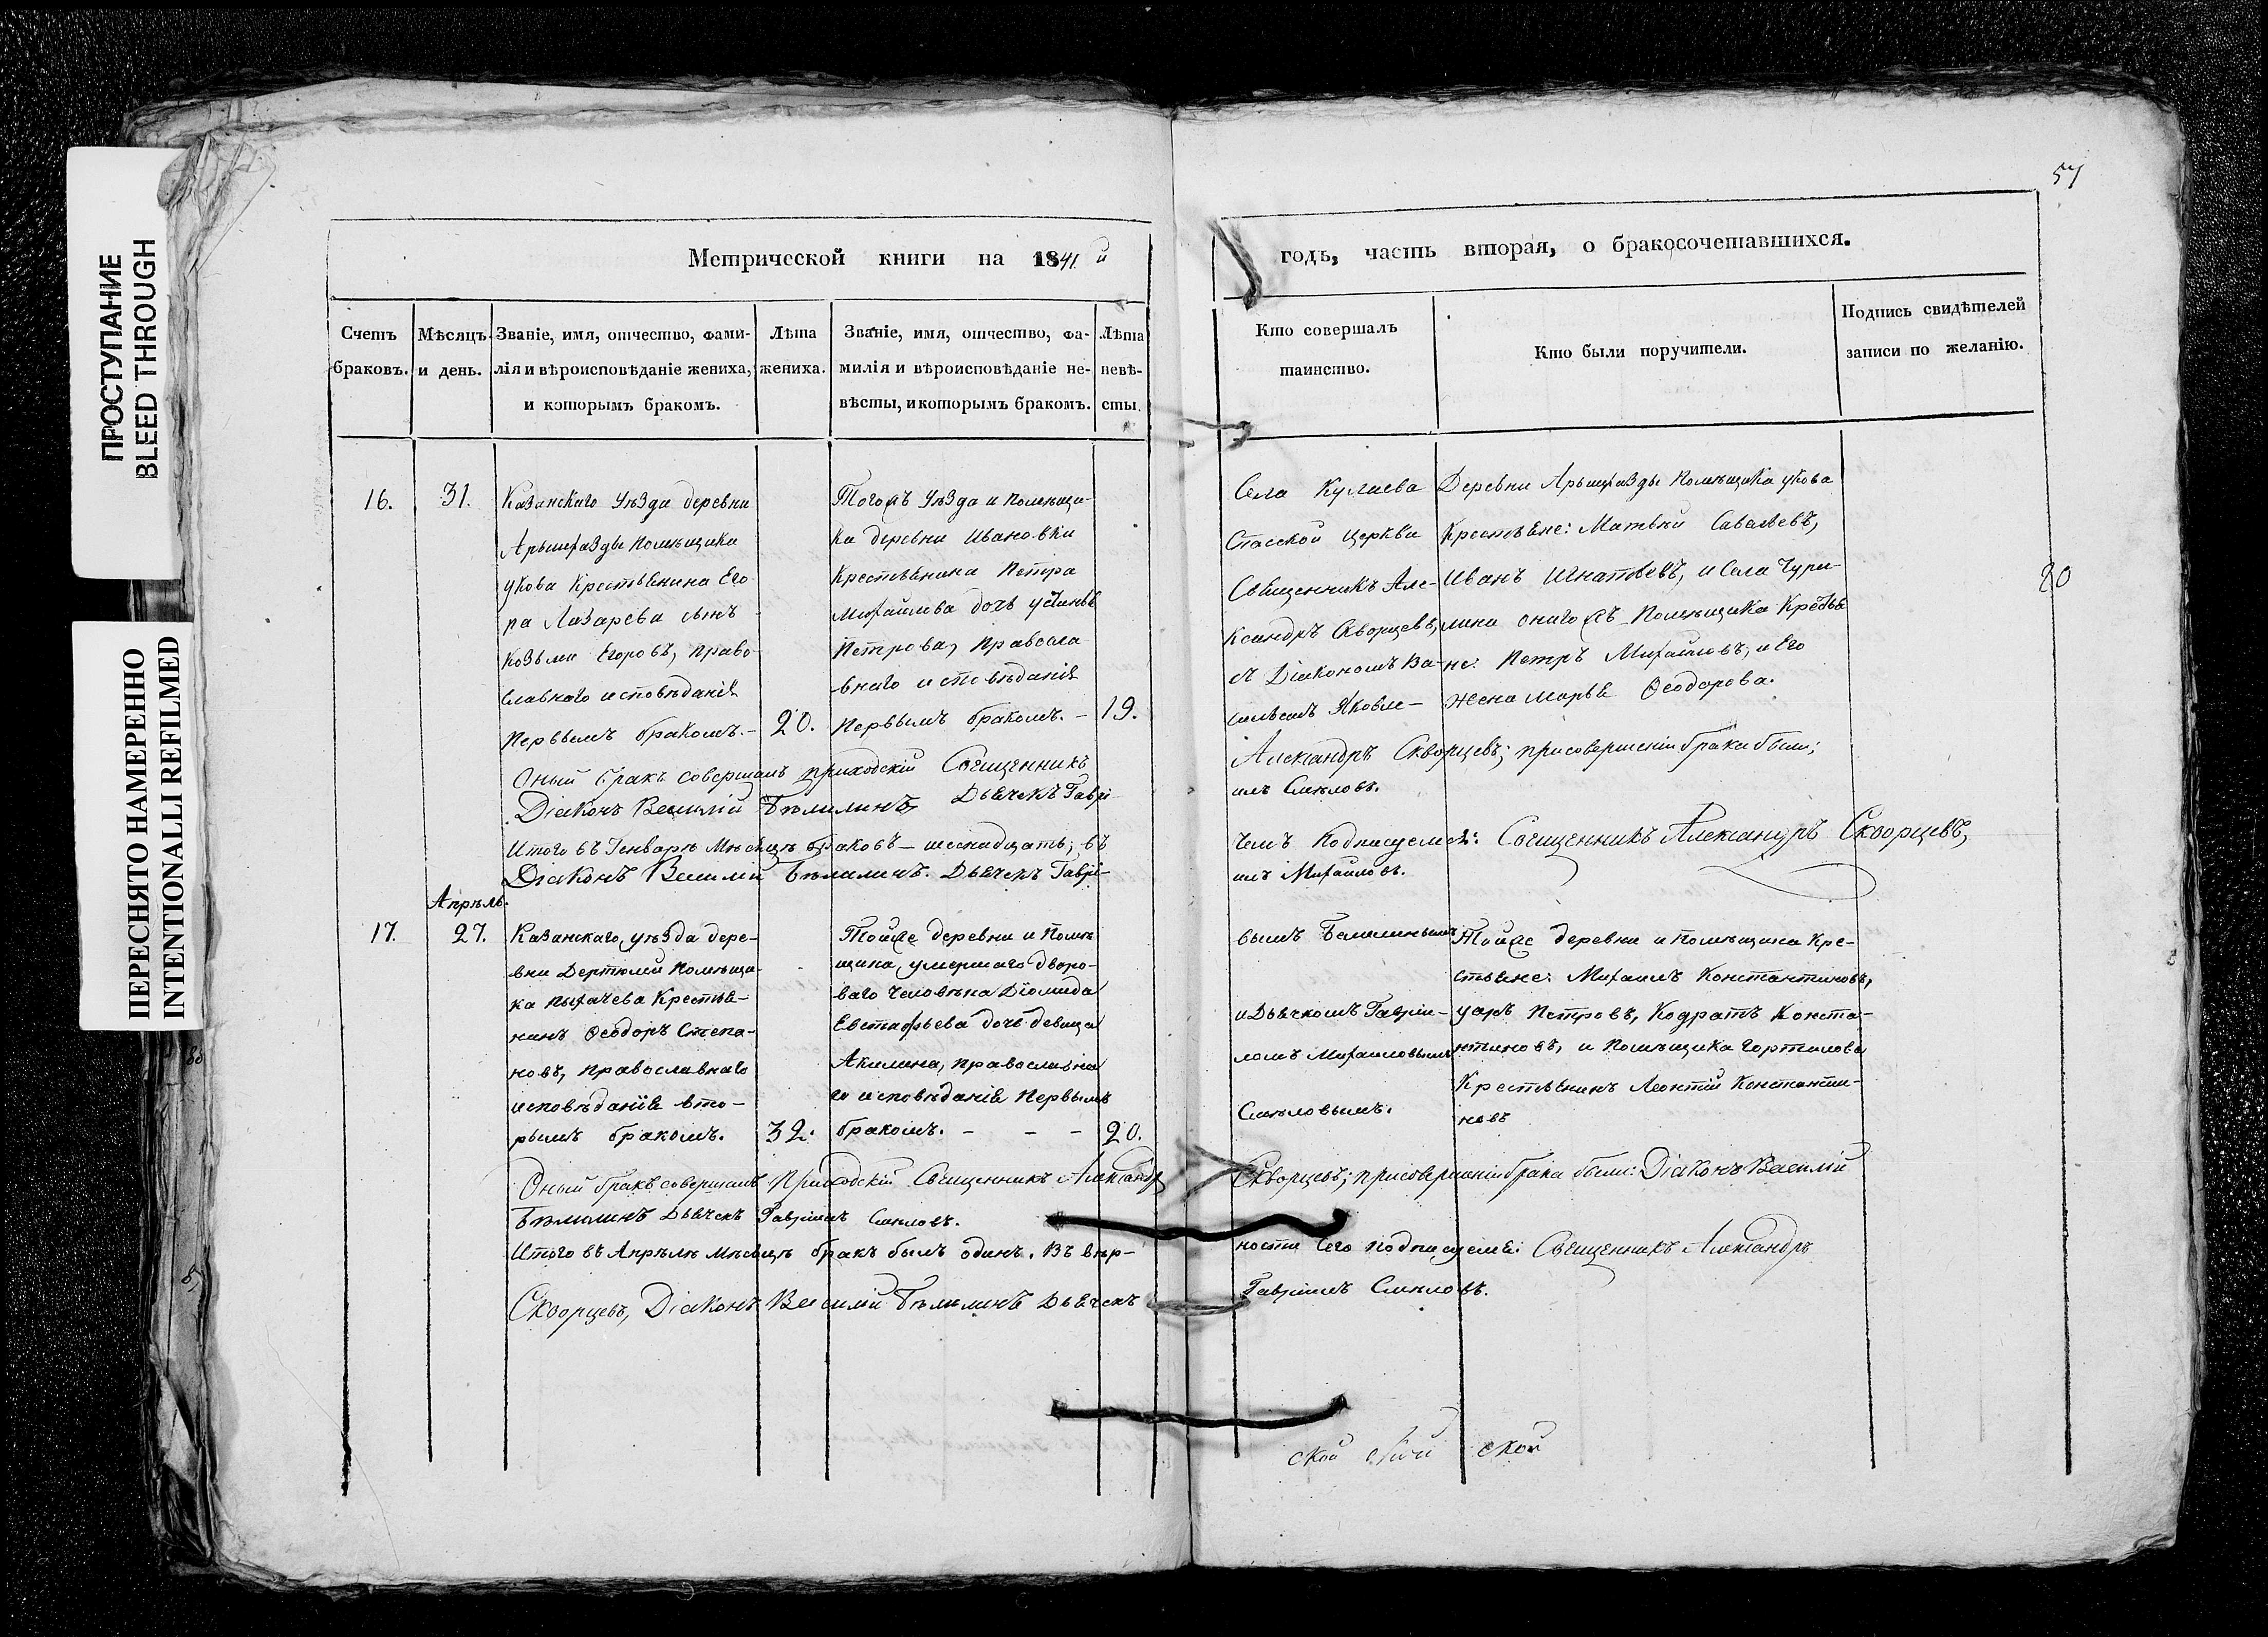 57
Метрической книги на 1841 й годъ, часть вторая, о бракосочетавшихся.
Счетъ браковъ.
Мѣсяцъ и день.
Званіе, имя, отчество, фами-
лія и вѣроисповѣданіе жениха,
и которымъ бракомъ.
Лѣта
жениха.
Званіе, имя, отчество, фа-
милія и вѣроисповѣданіе не-
вѣсты, и которымъ бракомъ.
Лѣта
невѣ-
сты.
Кто совершалъ
таинство.
Кто были поручители.
Подпись свидѣтелей
записи по желанію.
16.
31.
Казанскаго Уѣзда деревни
Помѣщика
Укова Крестьянина Его
ра Лазарева сынъ
Козьма Егоровъ, право-
славнаго исповѣданія
первымъ бракомъ.-
20.
Тогожъ Уѣзда и помѣщи-
ка деревни Ивановки
Крестьянина Петра
Михайлова дочь Устинья
Петрова, православ
внаго исповѣданія
первымъ бракомъ. -
19.
Села Кулаева
Спасской церкви
Священникъ Але-
ксандръ Скворцевъ,
съ Діакономъ Ва-
сильемъ Яковле-
Деревни Помѣщика Укова
Крестьяне: Матвѣй Савельевъ,
Иванъ Игнатьевъ, и Села Чури-
лина онагожъ Помѣщика Кресть
не: Петръ Михайловъ, и Его
жена Марья Ѳеодорова.
20
Оный бракъ совершалъ приходскій Священникъ Александръ Скворцевъ; присовершеніи брака были;
Діаконъ Василій Бѣлилинъ, Дьячекъ Гаврі-
илъ Смѣловъ.
Итого въ Генварѣ Мѣсяцѣ браковъ - шеснадцать; въ чемъ Подписуемся: Священникъ Александръ Скворцевъ,
Діаконъ Василій Бѣлилинъ. Дьячекъ Гаврі-
илъ Михайловъ.
Апрѣль.
17.
27.
Казанскаго уѣзда дере-
вни Дертюли Помѣщи-
ка Крестья-
нинъ Ѳеодоръ Степа-
новъ, православнаго
исповѣданія вто-
рымъ бракомъ.
32.
Тойже деревни и Помѣ
щика, умершаго дворо-
ваго человѣка Діомида
Евстафьева дочь девица
Акилина, православна
го исповѣданія первымъ
бракомъ. - - -
20.
вымъ Белилинымъ
и Дьячкомъ Гаврии-
ломъ Михайловымъ
Смѣловымъ.
Тойже деревни и помѣщика Кре-
стьяне: Михаилъ Константиновъ,
Уаръ Петровъ, Кодратъ Конста-
нтиновъ, и Помѣщика Горталова
Крестьянинъ Леонтій Константи-
новъ
Оный бракъ совершалъ Приходскій Священникъ Александръ Скворцевъ; присовершеніи брака были: Діаконъ Василій
Бѣлилинъ Дьячекъ Гавріилъ Смѣловъ.
Итого въ Апрѣлѣ Мѣсяцѣ бракъ былъ одинъ. Въ вѣр-
ности сего подписуемся: Священникъ Александръ
Скворцевъ, Діаконъ Василій Бѣлилинъ Дьячекъ
Гавріилъ Смѣловъ.
ской ской ской
ПРОСТУПАНИЕ
BLEED THROUGH
ПЕРЕСНЯТО НАМЕРЕННО
INTENTIONALLI REFILMED